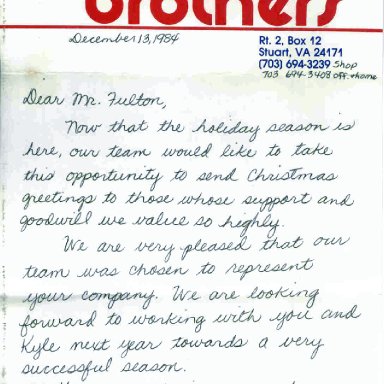 brothers
December 13, 1984
Rt. 2, Box 12
Stuart, VA 24171
(703) 694-3239 Shop
703 694-3408 off. & home
Dear Mr. Fulton,
Now that the holiday season is
here, our team would like to take
this opportunity to send Christmas
greetings to those whose support and
goodwill we value so highly.
We are very pleased that our
team was chosen to represent
your company. We are looking
forward to working with you and
Kyle next year towards a very
successful season.